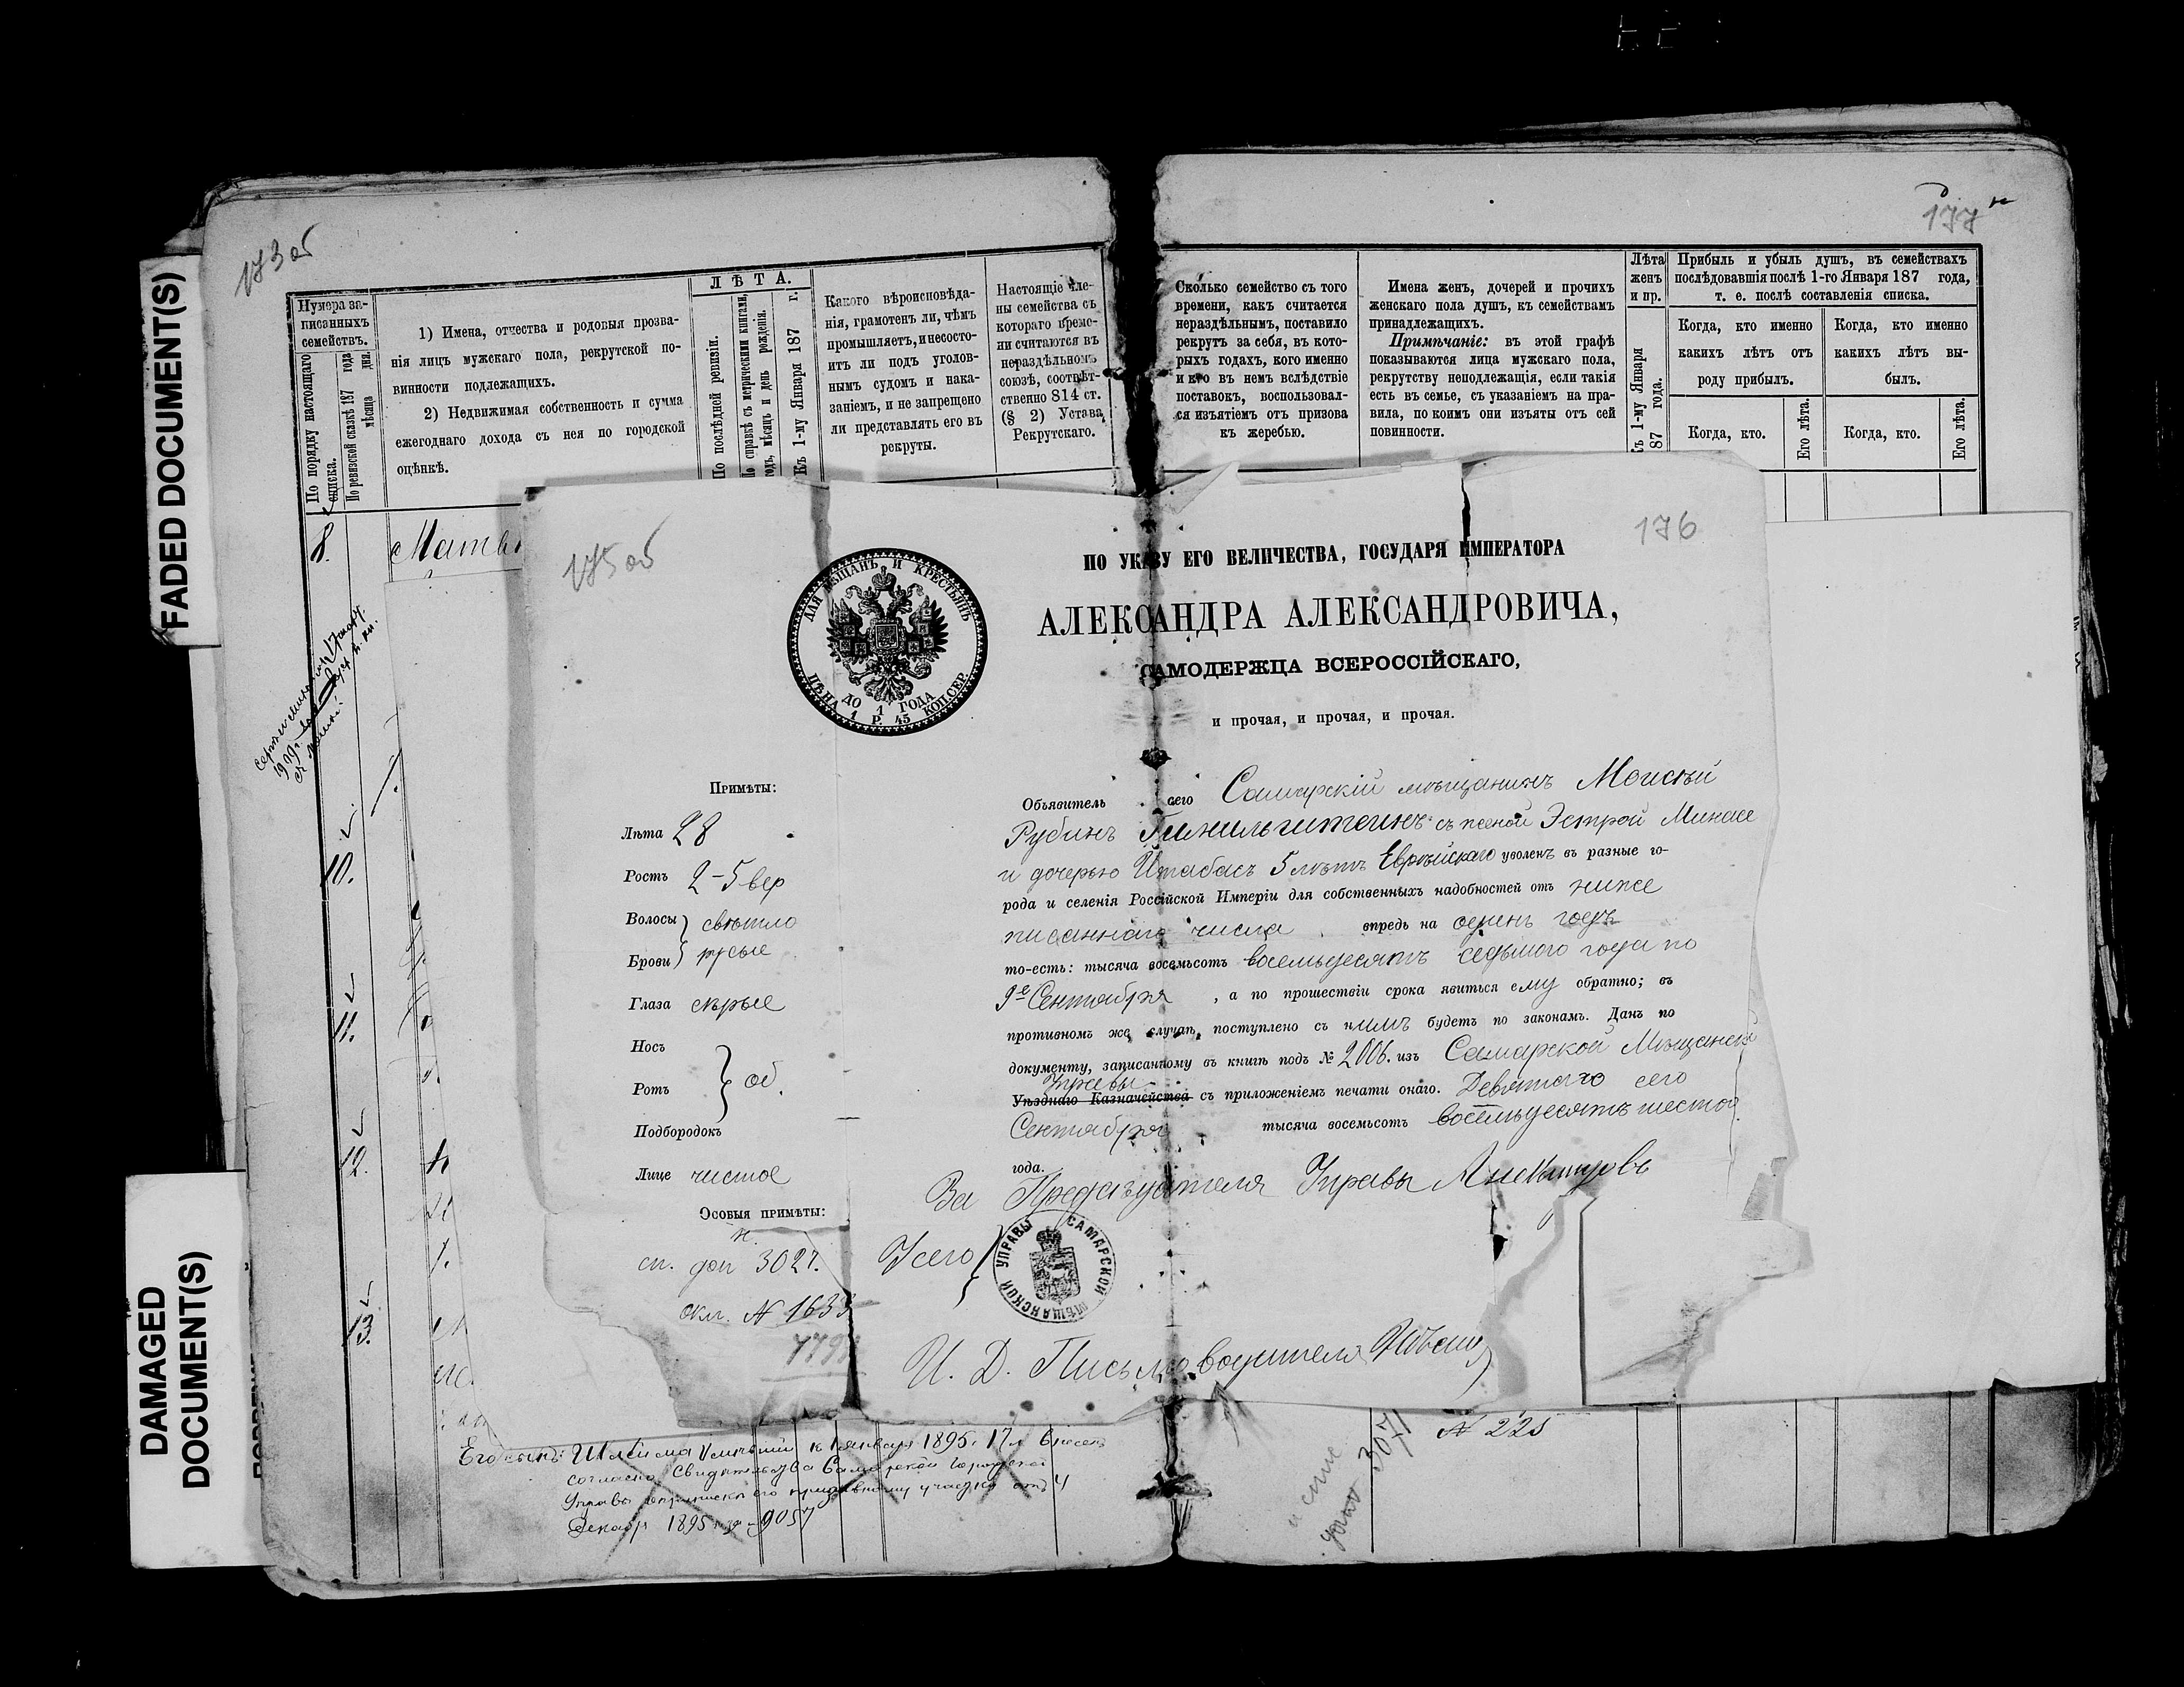 FADED DOCUMENT(S)
DAMAGED
DOCUMENT(S)
173 об
177
Нумера за-
писанныхъ
семействъ.
По порядку настоящаго
списка.
По ревизской сказкѣ 187 года
мѣсяца дня.
1) Имена, отчества и родовыя прозва-
нія лицъ мужскаго пола, рекрутской по-
винности подлежащихъ.
2) Недвижимая собственность и сумма
ежегоднаго дохода съ нея по городской
оцѣнкѣ.
ЛѢТА.
По послѣдней ревизіи.
По справкѣ съ метрическими книгами,
годъ, мѣсяцъ и день рожденія.
Къ 1-му Января 187 г.
Какого вѣроисповѣда-
нія, грамотенъ ли, чѣмъ
промышляетъ, и несосто-
итъ ли подъ уголов-
нымъ судомъ и нака-
заніемъ, и не запрещено
ли представлять его въ
рекруты.
Настоящіе чле-
ны семейства съ
котораго време-
ни считаются въ
нераздѣльномъ
союзѣ, соотвѣт-
ственно 814 ст.
(§ 2) Устава
Рекрутскаго.
Сколько семейство съ того
времени, какъ считается
нераздѣльнымъ, поставило
рекрутъ за себя, въ кото-
рыхъ годахъ, кого именно
и кто въ немъ вслѣдствіе
поставокъ, воспользовал-
ся изъятіемъ отъ призова
къ жеребью.
Имена женъ, дочерей и прочихъ
женскаго пола душъ, къ семействамъ
принадлежащихъ.
Примѣчаніе: въ этой графѣ
показываются лица мужскаго пола,
рекрутству неподлежащія, если такія
есть въ семье, съ указаніемъ на пра-
вила, по коимъ они изъяты отъ сей
повинности.
Лѣта
женъ
и пр.
Съ 1-му Января
87 года.
Прибыль и убыль душъ, въ семействахъ
послѣдовавшія послѣ 1-го Января 187 года,
т. е. послѣ составленія списка.
Когда, кто именно
какихъ лѣтъ отъ
роду прибылъ.
Когда, кто именно
какихъ лѣтъ вы-
былъ.
Когда, кто.
Его лѣта.
Когда, кто.
Его лѣта.
8.
10.
11.
12.
13.
175 об
176
ДЛЯ МѢЩАНЪ И КРЕСТЬЯНЪ
ДО 1 ГОДА
ЦѢНА 1 Р. 45 КОП. СЕР.
ПО УКАЗУ ЕГО ВЕЛИЧЕСТВА, ГОСУДАРЯ ИМПЕРАТОРА
АЛЕКСАНДРА АЛЕКСАНДРОВИЧА,
САМОДЕРЖЦА ВСЕРОССІЙСКАГО,
и прочая, и прочая, и прочая.
Примѣты:
Лѣта 28
Ростъ 2-5 вер
Волосы свѣтло
Брови русые
Глаза сѣрые
Носъ
Ротъ об.
Подбородокъ
Лице чистое
Особыя примѣты:
н.
сп. доп 3027.
окл. №
Объявитель сего Самарскій мѣщанинъ Моисѣй
Рубинъ съ женой Эстрой
и дочерью 5 лѣтъ Еврейскаго уволенъ въ разные го-
рода и селенія Россійской Имперіи для собственныхъ надобностей отъ ниже
писаннаго числа впредь на одинъ годъ
то-есть: тысяча восемьсотъ восемьдесятъ седьмого года по
9е Сентября, а по прошествіи срока явиться ему обратно; въ
противномъ же случаѣ, поступлено съ нимъ будетъ по законамъ. Данъ по
документу, записанному въ книгѣ подъ № 2006. изъ Самарской Мѣщанской
Управы
Уѣзднаго Казначейства съ приложеніемъ печати онаго. Девятаго сего
Сентября тысяча восемьсотъ восемьдесятъ шестого
года.
За Предсѣдателя Управы
Усего
САМАРСКОЙ МѢЩАНСКОЙ УПРАВЫ
И. Д. Письмоводителя
Его сынъ: къ 1 января 1895 г. 17 л
согласно Свидѣтельства Самарской Городской
Управы о припискѣ его призывному участку отъ 4
Декабр 1895 года 9057
№ 225